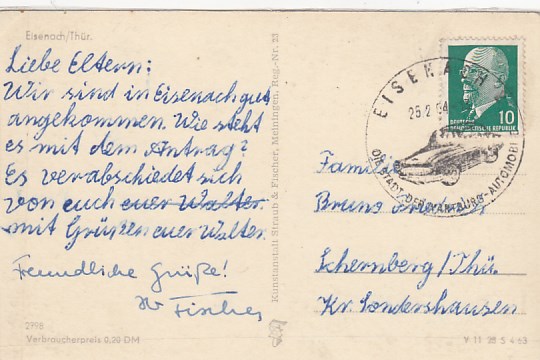 Eisenach/Thür.
Liebe Eltern;
Wir sind in Eisenach gut
angekommen. Wie steht
es mit dem Antrag?
Es verabschiedet sich
von euch euer Walter.
mit Grüßen euer Walter.
Freundliche Grüße!
Fischer
2998
Verbraucherpreis 0,20 DM
Kunstanstalt Straub & Fischer, Meiningen, Reg.-Nr. 23
EISENACH
25.2.64
DIE STADT DES WARTBURG-AUTOMOBI
10
DEUTSCHE
DEMOKRATISCHE REPUBLIK
Familie
Bruno
Schernberg/Thü.
Kr. Sondershausen
V 11 28 S 4 63